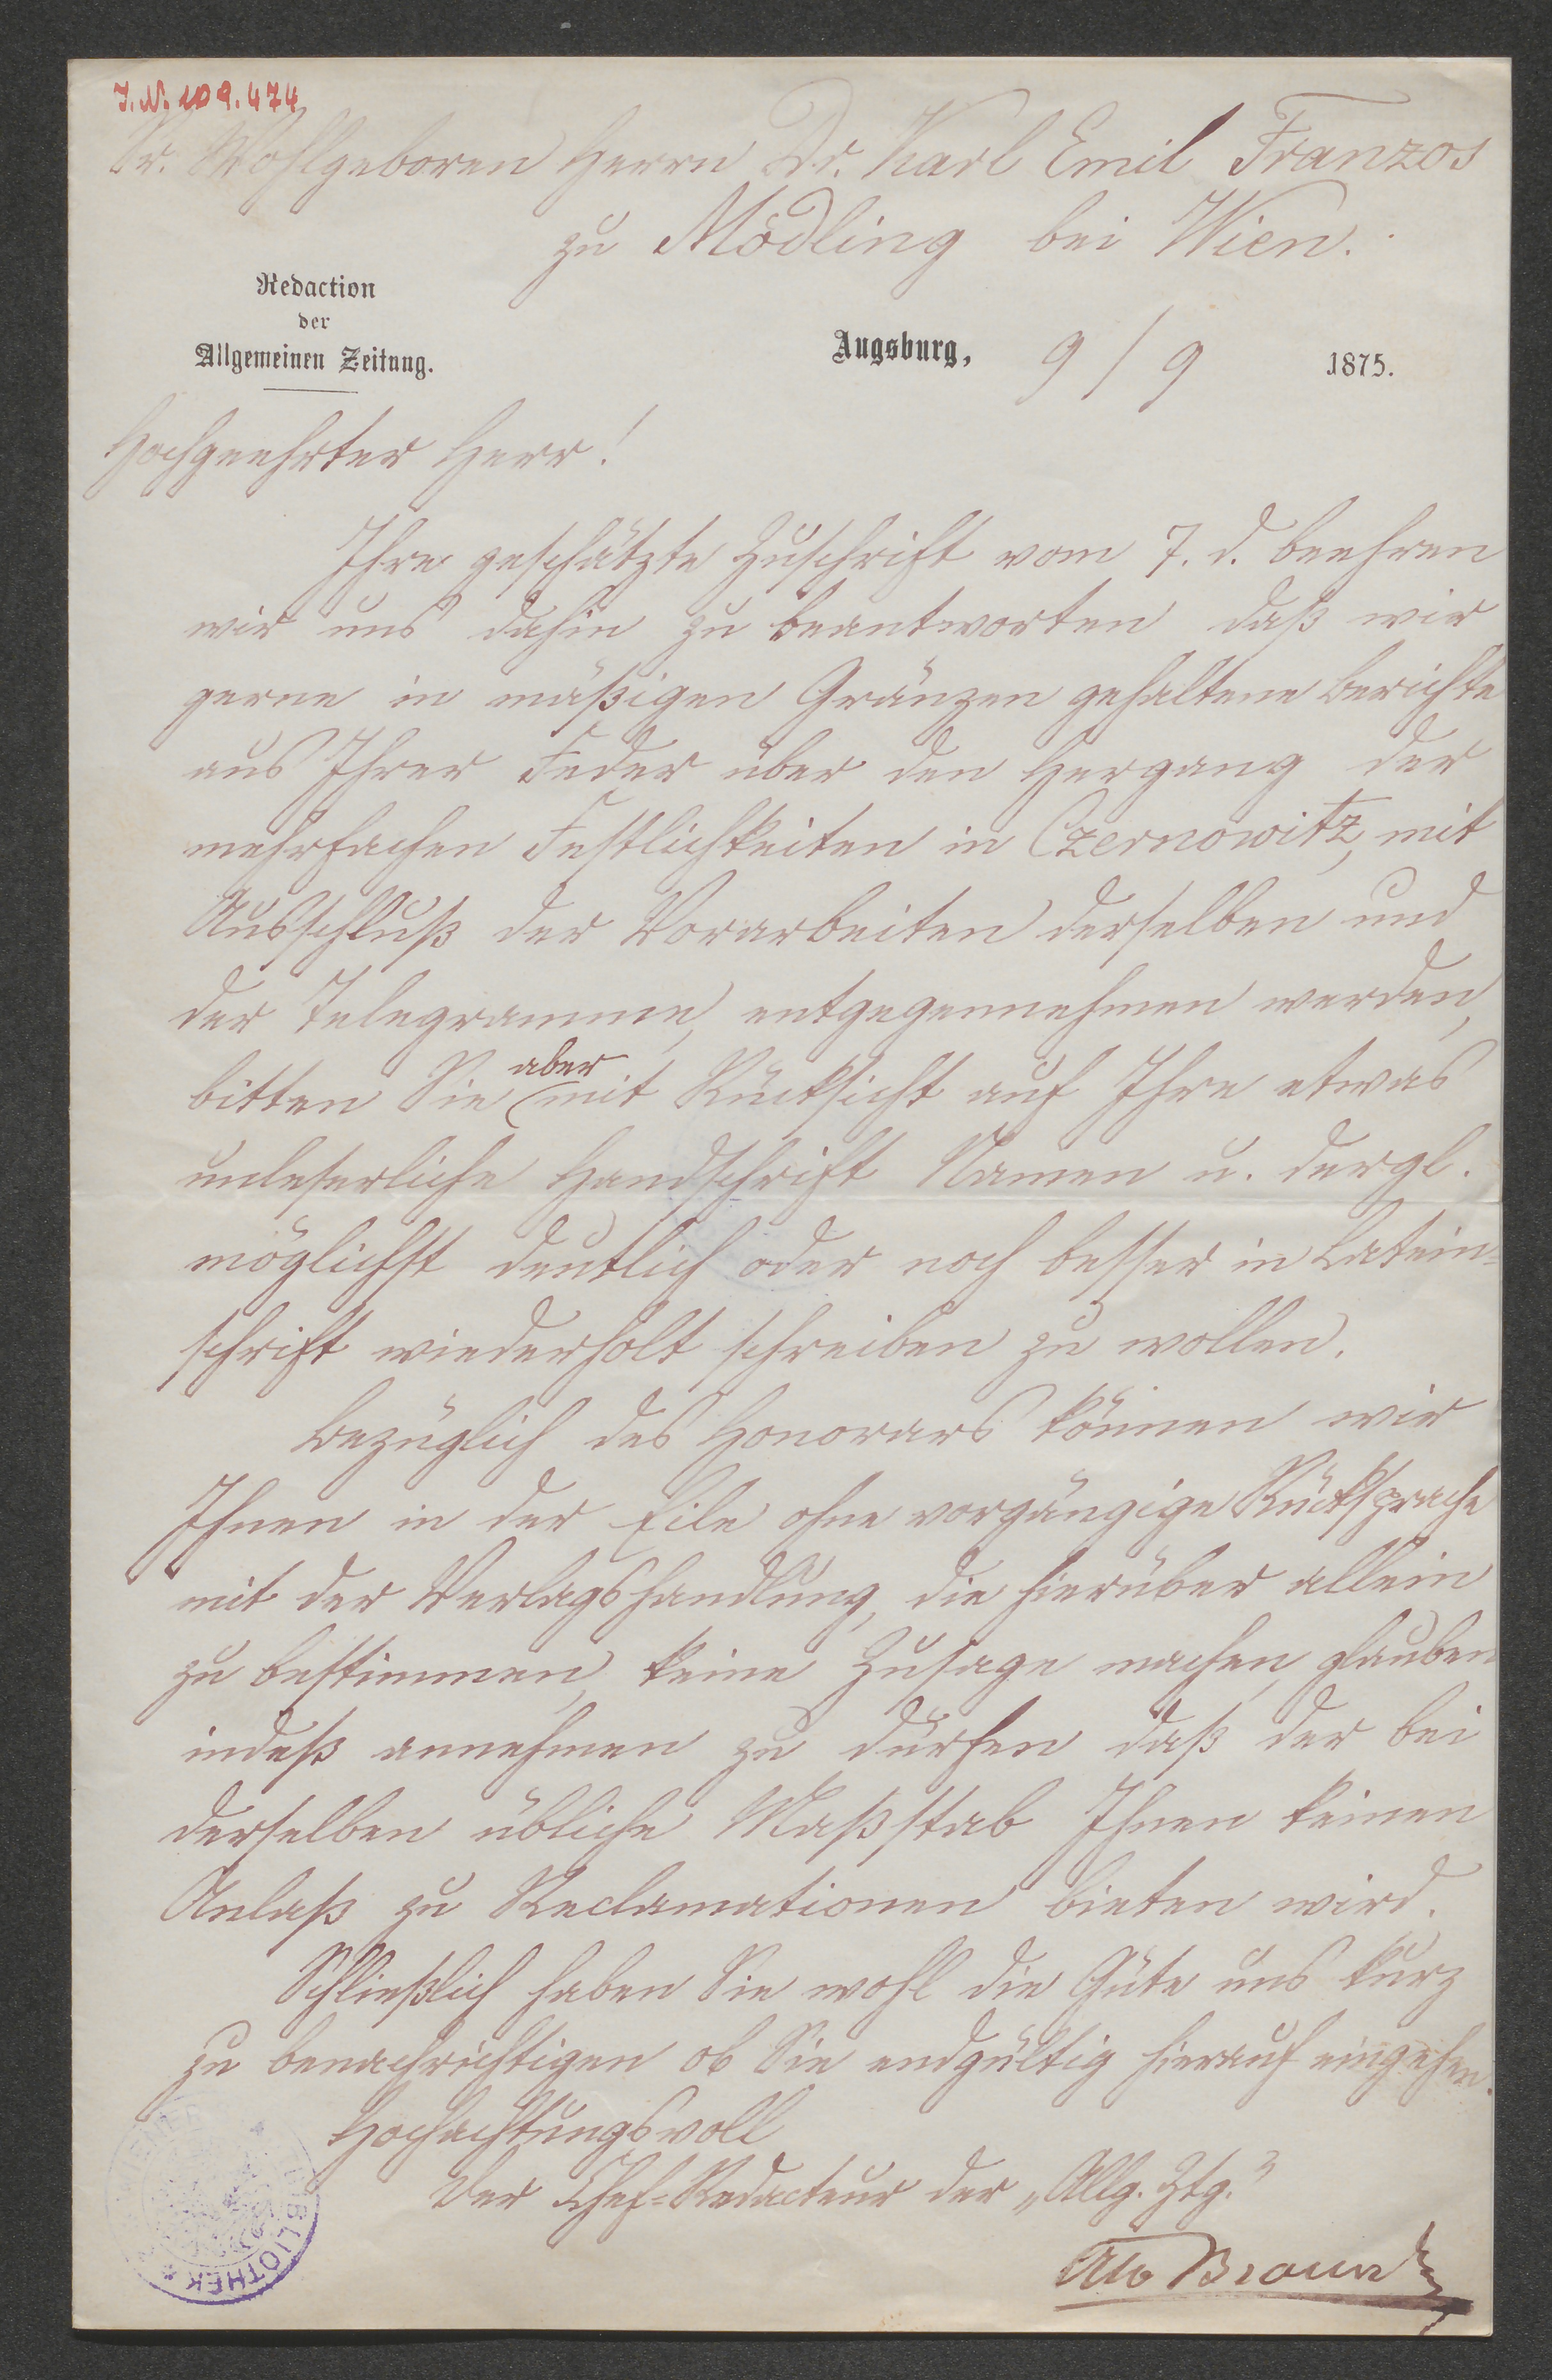 J.N. 109.474
Sr. Wohlgeboren Herrn Dr. Karl Emil Franzos
zu Mödling bei Wien.
Redaction
der
Allgemeinen Zeitung.
Augsburg, 9/9 1875.
Hochgeehrter Herr!
Ihre geschätzte Zuschrift vom 7. d. beehren
wir uns dahin zu beantworten daß wir
gerne in mäßigen Gränzen gehaltene Berichte
aus Ihrer Feder über den Hergang der
mehrfachen Festlichkeiten in Czernowitz, mit
Ausschluß der Vorarbeiten derselben und
der Telegramme, entgegennehmen werden,
bitten Sie aber mit Rücksicht auf Ihre etwas
unleserliche Handschrift Namen u. dergl.
möglichst deutlich oder noch besser in Latein-
schrift wiederholt schreiben zu wollen.
Bezüglich des Honorars können wir
Ihnen in der Eile ohne vorgängige Rücksprache
mit der Verlagshandlung, die hierüber allein
zu bestimmen, keine Zusage machen, glauben
indeß annehmen zu dürfen daß der bei
derselben übliche Maßstab Ihnen keinen
Anlaß zu Reclamationen bieten wird.
Schließlich haben Sie wohl die Güte uns kurz
zu benachrichtigen ob Sie endgültig hierauf eingehen.
Hochachtungsvoll
Der Chef-Redacteur der „Allg. Ztg."
Otto Braun
BIBLIOTHEK